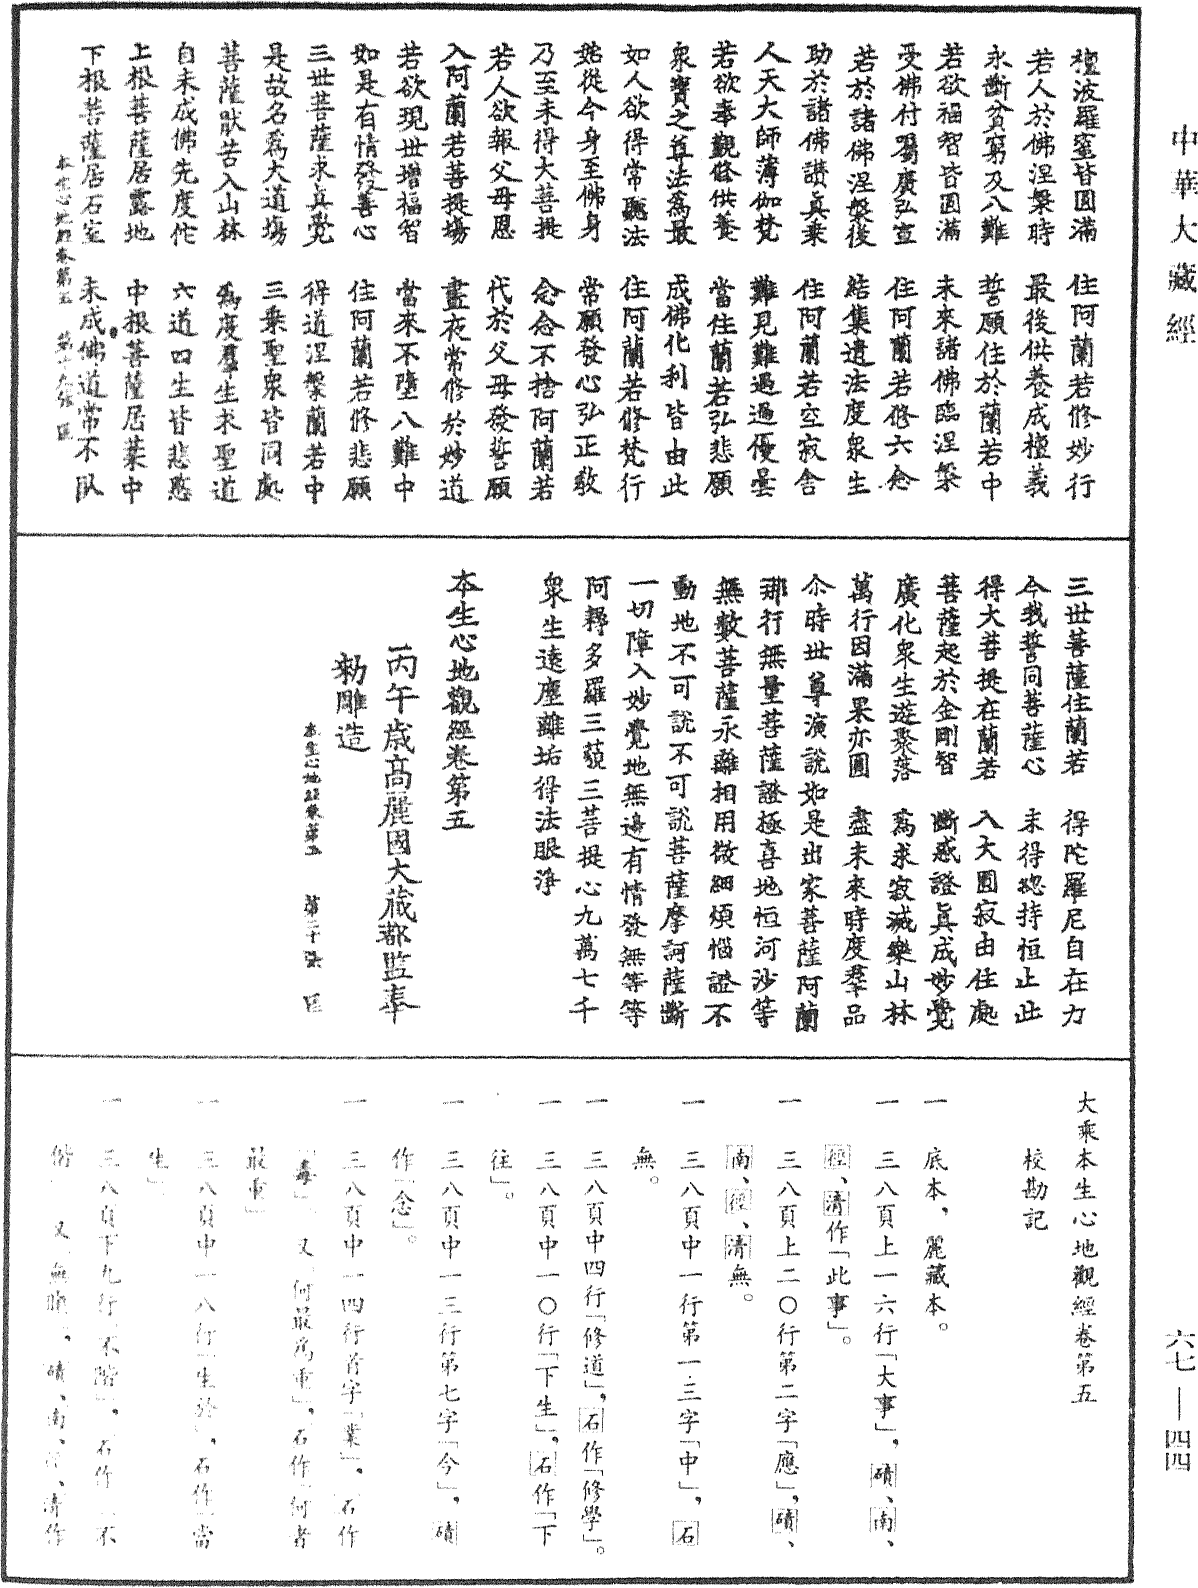 中華大藏經
檀波羅蜜皆圓滿　住阿蘭若修妙行
若人於佛涅槃時　最後供養成檀義
永斷貧窮及八難　誓願住於蘭若中
若欲福智皆圓滿　未來諸佛臨涅槃
受佛付囑廣弘宣　住阿蘭若修六念
若於諸佛涅槃後　結集遺法度衆生
助於諸佛讚眞乗　住阿蘭若空寂舎
人天大師薄伽梵　難見難遇過優曇
若欲奉覲修供養　當住蘭若弘悲願
衆寶之尊法爲最　成佛化利皆由此
如人欲得常聽法　住阿蘭若修梵行
始從今身至佛身　常願發心弘正教
乃至未得大菩提　念念不捨阿蘭若
若人欲報父母恩　代於父母發誓願
入阿蘭若菩提場　晝夜常修於妙道
若欲現世增福智　當來不墮八難中
如是有情發善心　住阿蘭若修悲願
三世菩薩求眞覺　得道涅槃蘭若中
是故名爲大道場　三乘聖衆皆同處
菩薩猒苦入山林　爲度羣生求聖道
自未成佛先度佗　六道四生皆悲愍
上根菩薩居露地　中根菩薩居葉中
下根菩薩居石室　未成佛道常不臥
本生心地經卷第五　第十九張　匡
三世菩薩住蘭若　得陀羅尼自在力
今我誓同菩薩心　未得總持恒止此
得大菩提在蘭若　入大圓寂由住處
菩薩起於金剛智　斷惑證眞成妙覺
廣化衆生遊聚落　爲求寂滅樂山林
萬行因滿果亦圓　盡未來時度羣品
尒時世尊演說如是出家菩薩阿蘭
那行無量菩薩證極喜地恒河沙等
無數菩薩永離相用微細煩惱證不
動地不可說不可說菩薩摩訶薩斷
一切障入妙覺地無邊有情發無等等
阿耨多羅三藐三菩提心九萬七千
衆生遠塵離垢得法眼淨
本生心地觀經卷第五
丙午歲高麗國大藏都監奉
勅雕造
本生心地經卷第五　第二十張　匡
大乘本生心地觀經卷第五
校勘記
一　底本，麗藏本。
一　三八頁上一六行「大事」，磧、南、
徑、清作「此事」。
一　三八頁上二〇行第二字「應」，磧、
南、徑、清無。
一　三八頁中一行第一三字「中」，石
無。
一　三八頁中四行「修道」，石作「修學」。
一　三八頁中一〇行「下生」，石作「下
往」。
一　三八頁中一三行第七字「今」，磧
作「念」。
一　三八頁中一四行首字「業」，石作
「毒」。又「何最爲重」，石作「何者
最重」
一　三八頁中一八行「生於」，石作「當
生」
一　三八頁下九行「不階」，石作「不
偕」又「無」，磧、南、徑、清作
六七—四四